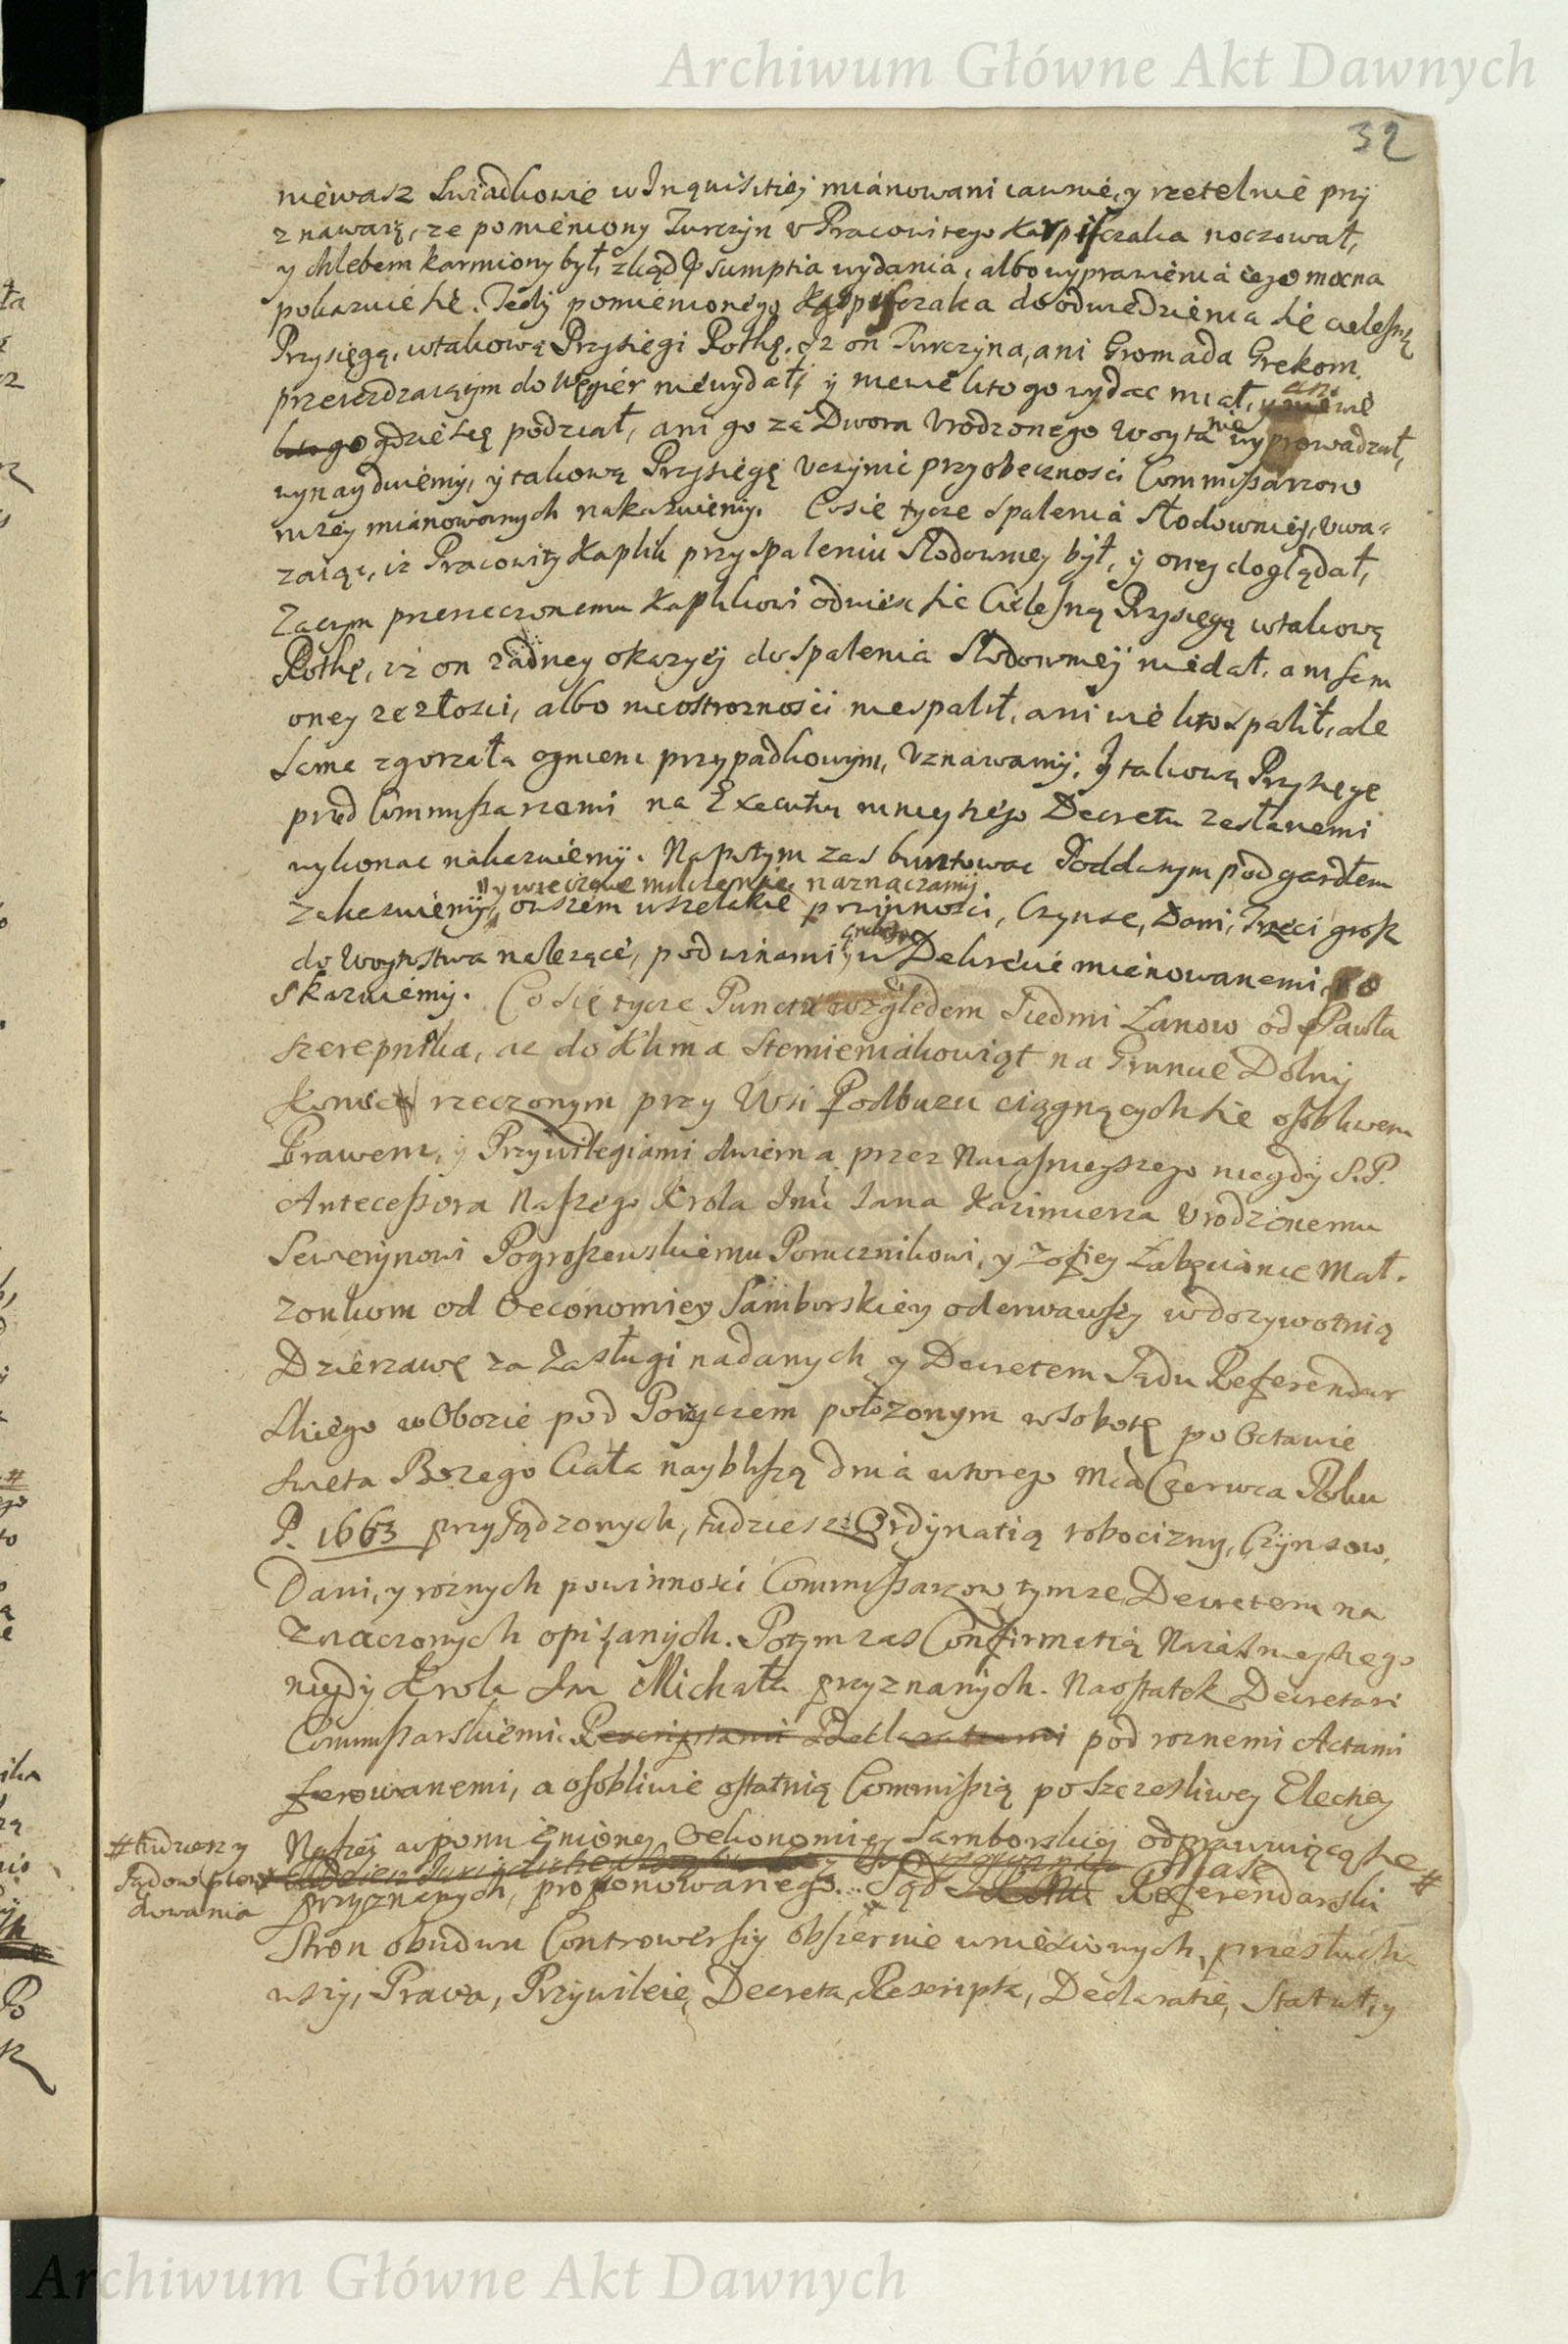 Archiwum Główne Akt Dawnych
32
niewasz Swiadkowie w Inquisitiej mianowani iawnie, y rzetelnie przy
znawaią, ze pomieniony Turczyn v Pracowitego Karpisczaka noczował,
y chlebem karmiony był, zkąd sumptia wydania, albo wyprawienia iego mocna
pokazuie się. Tedy pomienionego Karpisczaka do odwiedzienia się cielesną
Przysięgą, w takową Przysięgi Rothę. Iz on Turczyna, ani Gromada Grekom
przeiezdzaiącym do Węgier niewydał, y niewie kto go wydac miał, ani wie
gdzie się podział, ani go ze Dwora Vrodzonego Woyta nie wyprowadzał,
wynayduiemy, y takową Przysięgę vczynic przy obecnosci Commissarzow
nizey mianowanych nakazuiemy. Co sie tycze spalenia Słodowniey, vwa-
zaiąc, iz Pracowity Kaplik przy spaleniu Słodowney był, y oney doglądał,
Zaczym przerzeczonemu Kaplikowi odwiesc się Cielesną Przysięgą w takową
Rothę, iz on zadney okazyey do spalenia Słodowniey niedał, ani sam
oney ze złosci, albo nieostroznosci niespalił, ani wie kto spalił, ale
sama zgorzała ogniem przypadkowym, Vznawamy, y takową Przysięgę
przed Commissarzami na Executią ninieyszego Decretu zesłanemi
wykonac nakazuiemy. Napotym zas buntowac Poddanym pod gardłem
y wieczne milczenie naznaczamy
zakazuiemy, owszem wszelakie powinnosci, Czynsze, Dani, Trzeci grosz
do Woytostwa nalezące, pod winami w Dekrecie mianowanemi
skazuiemy. Co się tycze Punctu względem Siedmi Łanow od Pawła
Szerepnika, az do Klima Stemieniakowiąt na Gruncie Dolny
Koniec rzeczonym przy Wsi Podbuzu ciągnących się osobliwem
Prawem, y Przywilegiami dwiema przez Naiasnieyszego niegdy S. P.
Antecessora Naszego Krola Imci Iana Kazimierza Vrodzonemu
Sewerynowi Pogroszewskiemu Porucznikowi, y Zofiey Zabęcianie Mał-
zonkom od Oeconomiey Samborskiey oderwawszy w dozywotnią
Dzierzawę za Zasługi nadanych y Decretem Sądu Referendar
skiego w Obozie pod Poryczem połozonym w Sobotę po Octawie
Swięta Bozego Ciała naybliszą dnia wtorego Mca Czerwca Roku
P. 1663 przysądzonych, tudziesz Ordynatią robocizny, Czynszow,
Dani, y roznych powinnosci Commissarzow tymze Decretem na
znaczonych opisanych. Potym zas Confirmatią Naiasnieyszego
niegdy Krola Im Michała przyznanych. Naostatek Decretami
Commissarskiemi pod roznemi Actami
ferowanemi, a osobliwie ostatnią Commissią po szczesliwey Elekcey
Naszey w pomienioney Oekonomiey Samborskiey odprawuiącą się #
# tudziesz y
Sądow
dowania
przyznanych, proponowanego. Sąd Nasz Referendarski
Stron obudwu Controwersiy obszernie wniesionych, przesłucha
wszy, Prawa, Przywileie, Decreta, Rescripta, Declaratie, Statut, y
Archiwum Główne Akt Dawnych